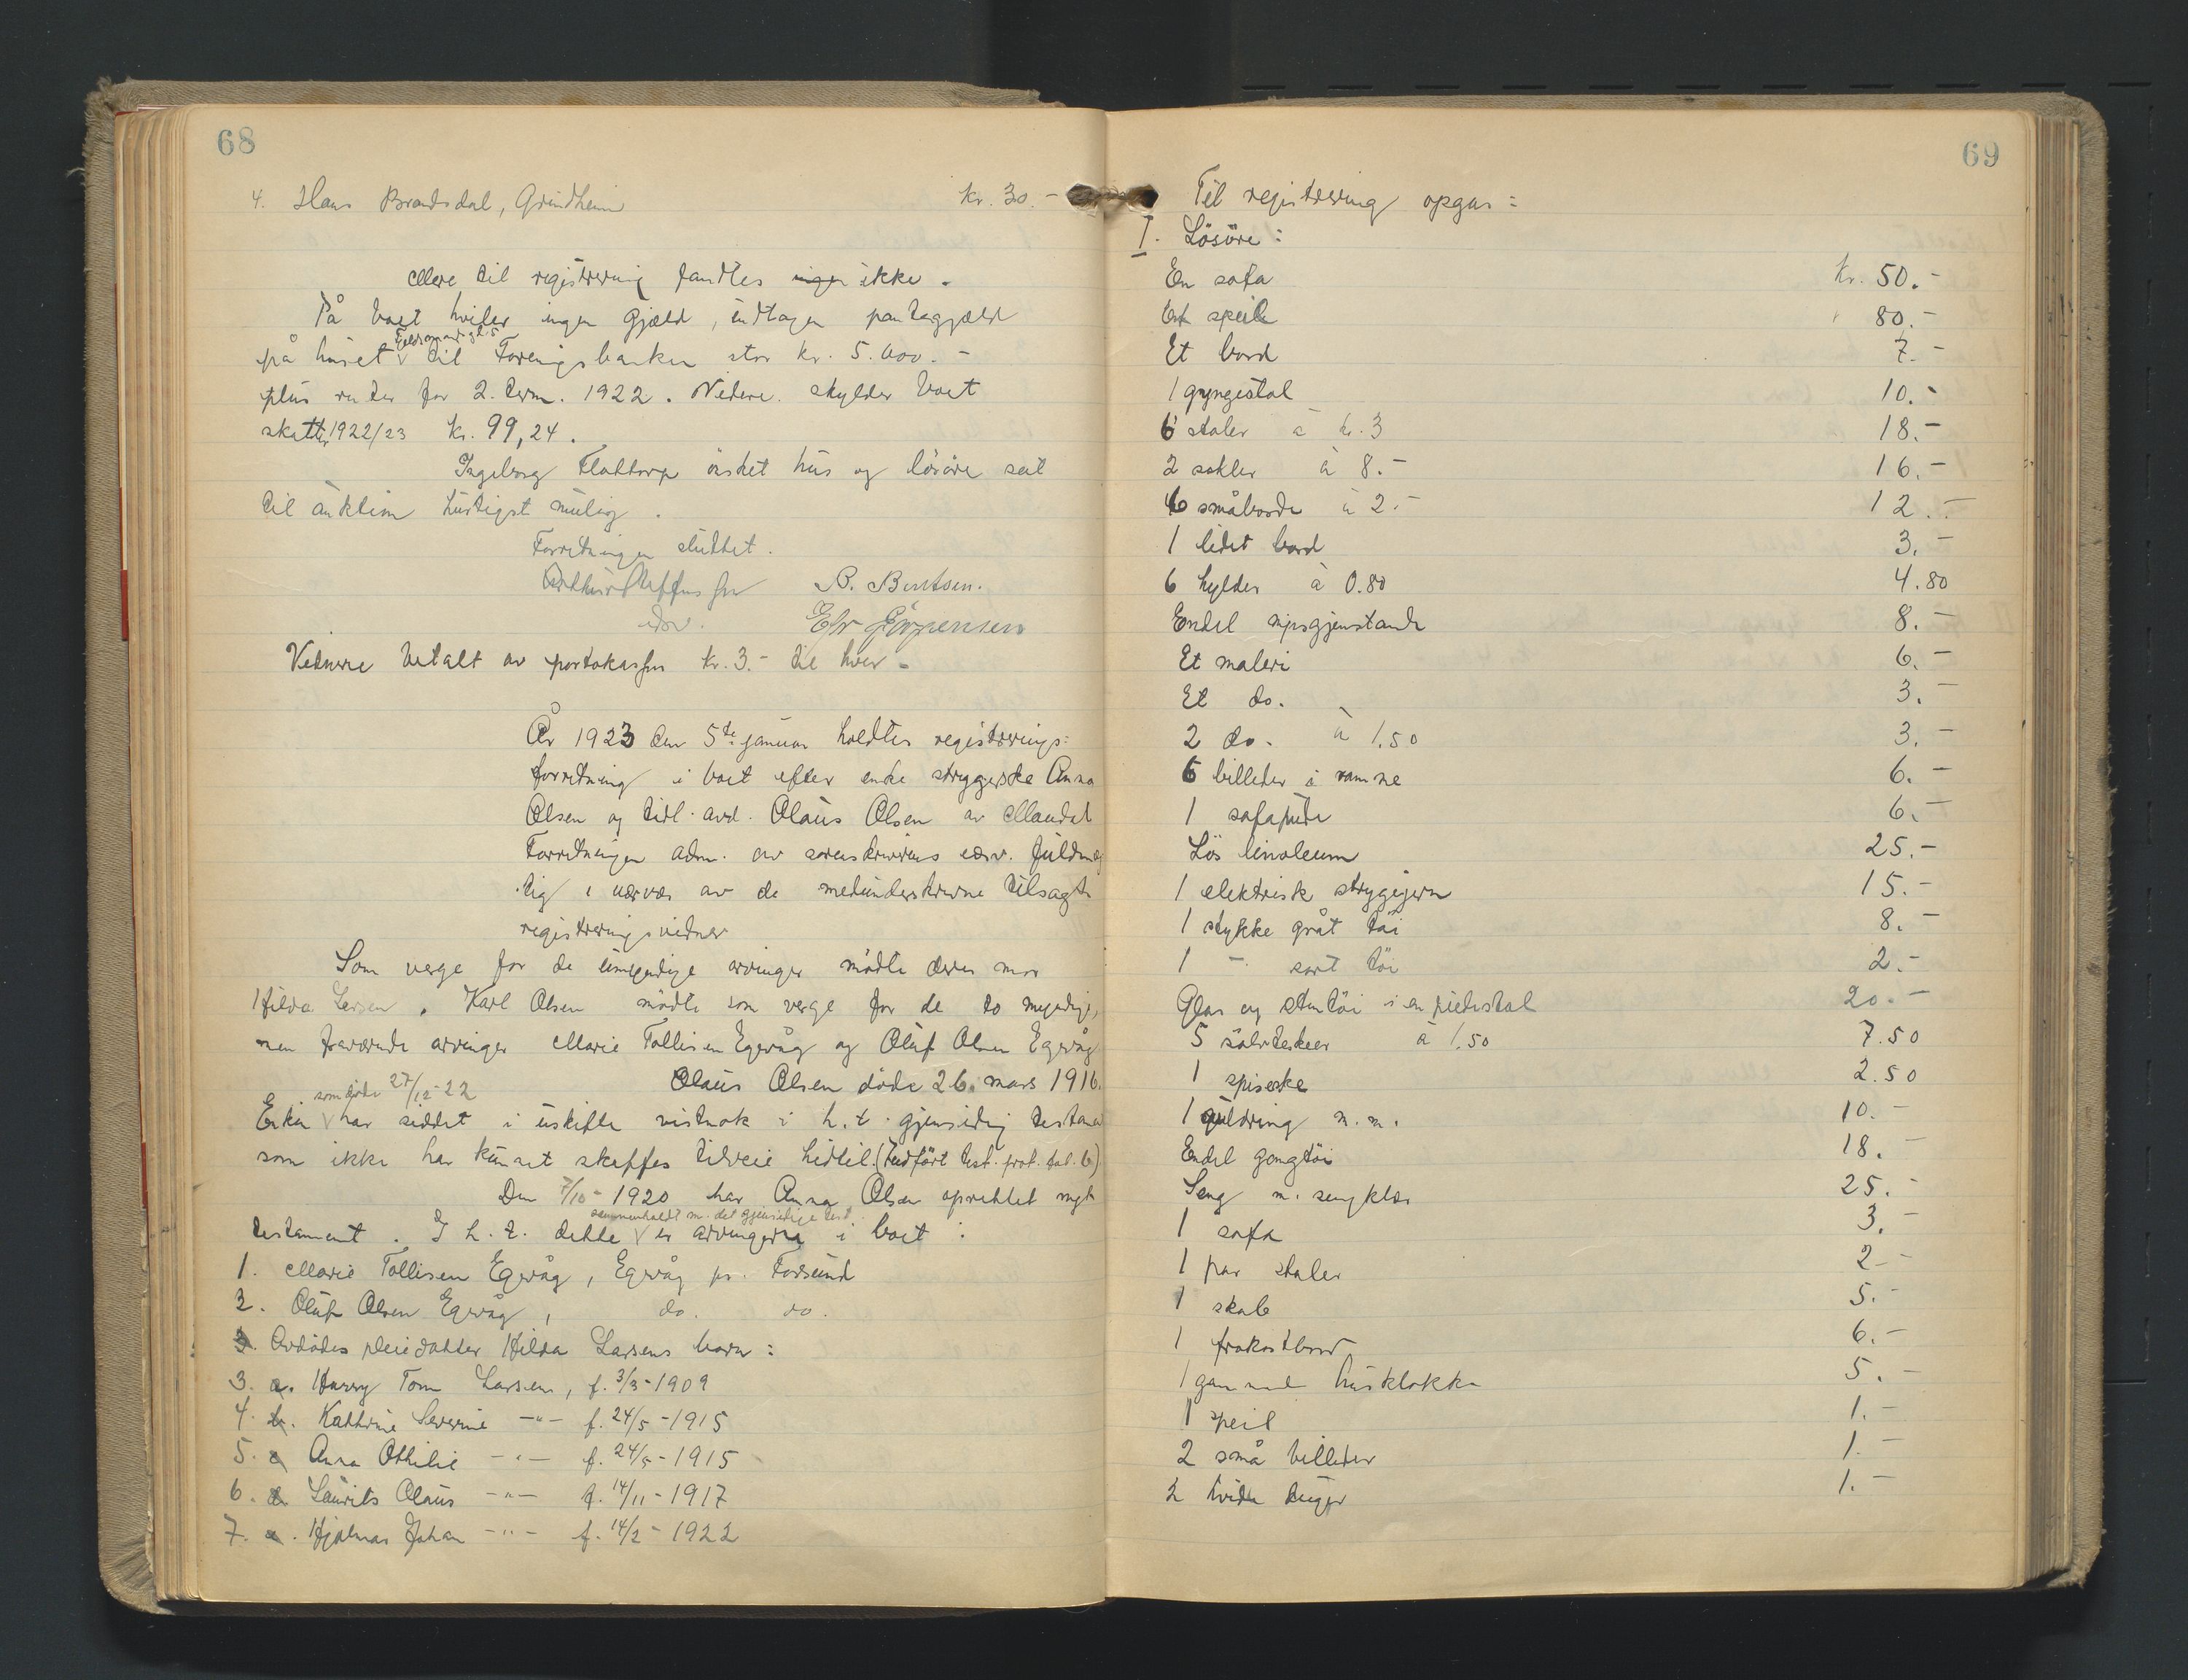 68
4. Hans Brandsdal, Grindheim kr. 30.-
Mere til registrering fandtes ikke.
På boet hviler ingen gjæld, undtagen pantegjæld
på huset til Foreningsbanken stor kr. 5.000.-
plus renter for 2. term. 1922. Videre skylder boet
skatter 1922/23 kr. 99,24.
Ingeborg Flottorp ønsket hus og løsøre sat
til auktion hurtigst mulig.
Forretningen sluttet.
B. Berntsen.
edsv. Jørgensen
Vidnene betalt av portokassen kr. 3.- til hver.
År 1923 den 5te januar holdtes registrerings-
forretning i boet efter enke strygerske Anna
Olsen og tidl. avd. Olaus Olsen av Mandal
Forretningen adm. av sorenskriverens edsv. fuldmæg
tig i nærvær av de medunderskrevne tilsagte
registreringsvidner
Som verge for de umyndige arvinger mødte deres mor
Hilda Larsen. Karl Olsen mødte som verge for de to myndige,
men fraværende arvinger Marie Tollisen Egvåg og Oluf Olsen Egvåg
Olaus Olsen døde 26. mars 1916.
som døde 27/12-22
Enken har siddet i uskifte vistnok i h.t. gjensidig testament
som ikke har kunnet skaffes tilveie hidtil. (Indført test. prot. fol. 6)
Den 7/10-1920 har Anna Olsen oprettet nyt
sammenholdt m. det gjensidige test.
testament. I h.t. dette er arvingerne i boet:
1. Marie Tollisen Egvåg, Egvåg pr. Farsund
2. Oluf Olsen Egvåg, do. do.
3. Avdødes pleiedatter Hilda Larsens barn:
3. a. Harry Tom Larsen, f. 3/3-1909
4. b. Kathrine Severine -"- f. 24/5-1915
5. c. Anna Othilie -"- f. 24/5-1915
6. d. Laurits Olaus -"- f. 14/11-1917
7. e. Hjalmar Johan -"- f. 14/2-1922
69
Til registrering opgas:
I. Løsøre:
En sofa kr. 50.-
Et speil " 80.-
Et bord 7.-
1 gyngestol 10.-
6 stoler à kr. 3 18.-
2 sokler à 8.- 16.-
6 småborde à 2.- 12.-
1 lidet bord 3.-
6 hylder à 0.80 4.80
Endel nipsgjenstande 8.-
Et maleri 6.-
Et do. 3.-
2 do. à 1.50 3.-
6 billeder i ramme 6.-
1 sofapute 6.-
Løs linoleum 25.-
1 elektrisk strygejern 15.-
1 stykke gråt tøi 8.-
1 - sort tøi 2.-
Glas og stentøi i en piedestal 20.-
5 sølvteskeer à 1.50 7.50
1 spiseske 2.50
1 guldring m.m. 10.-
Endel gangtøi 18.-
Seng m. sengklær 25.-
1 sofa 3.-
1 par stoler 2-
1 skab 5.-
1 frokostbord 6.-
1 gammel husklokke 5.-
1 speil 1.-
2 små billeder 1.-
2 hvide duger 1.-